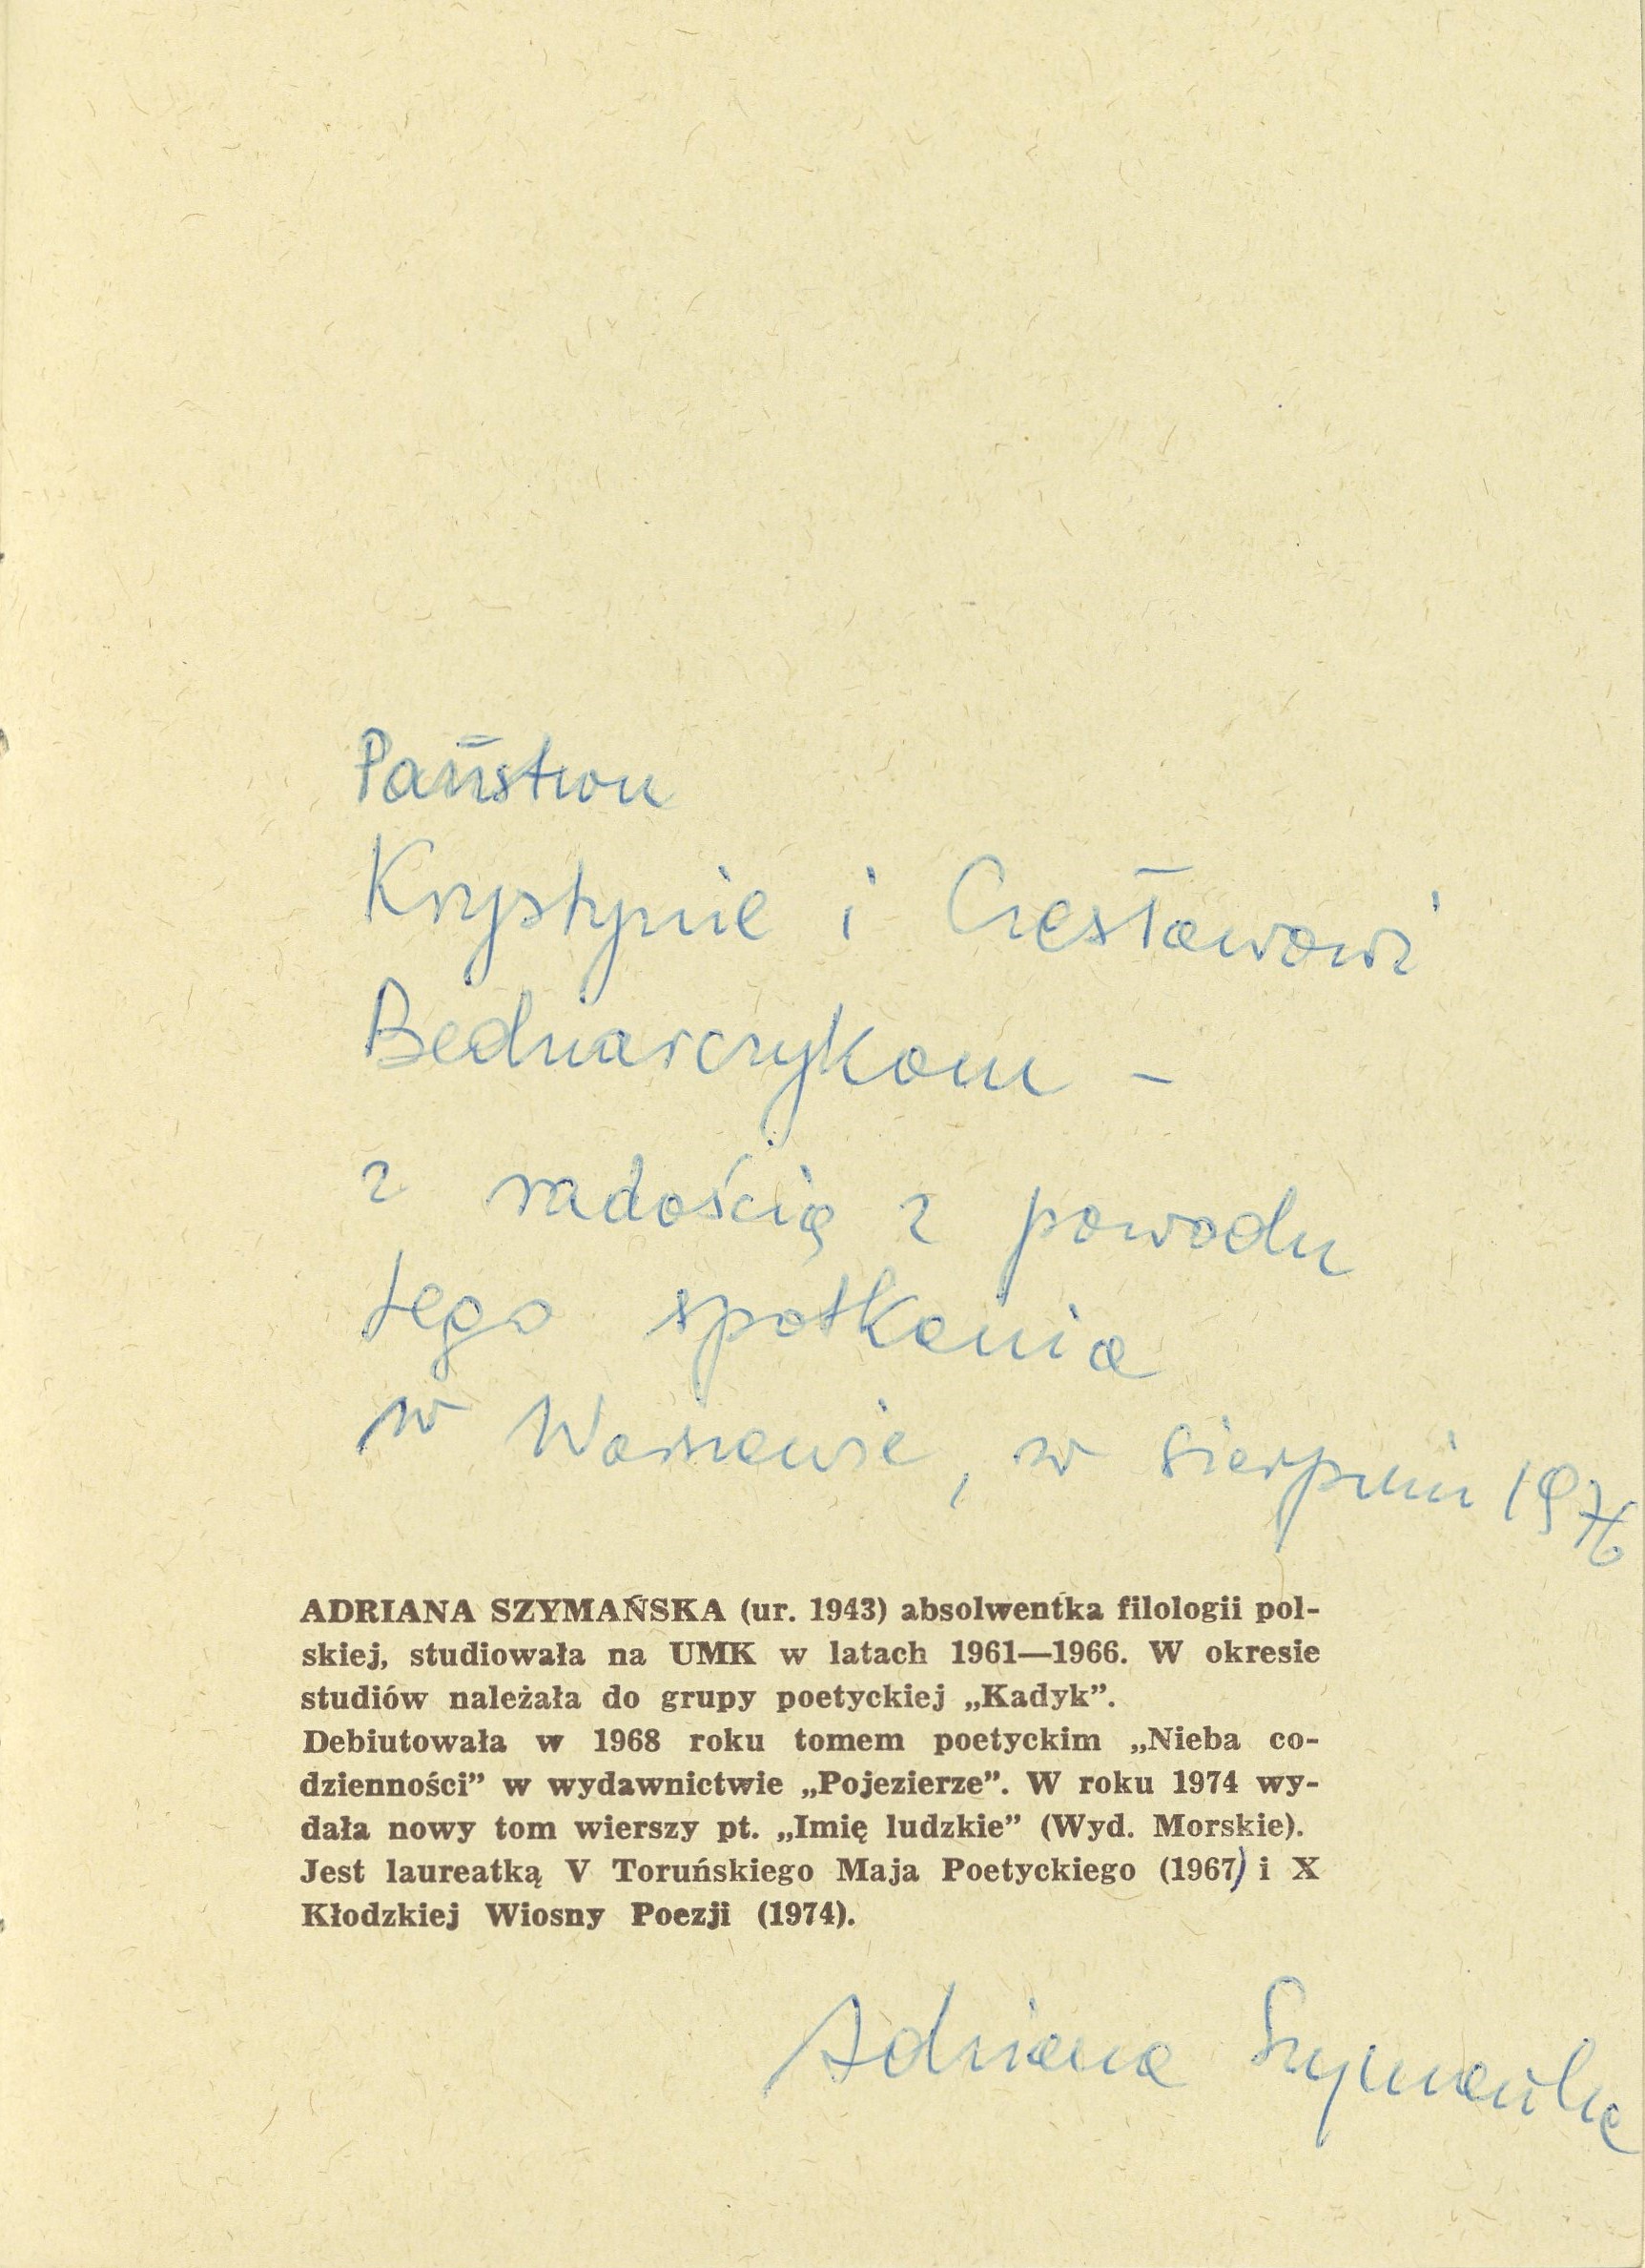 Państwu
Krystynie i Czesławowi
Bednarczykom –
z radością z powodu
tego spotkania
w Warszawie, w sierpniu 1976
ADRIANA SZYMAŃSKA (ur. 1943) absolwentka filologii pol-
skiej, studiowała na UMK w latach 1961—1966. W okresie
studiów należała do grupy poetyckiej „Kadyk”.
Debiutowała w 1968 roku tomem poetyckim „Nieba co-
dzienności” w wydawnictwie „Pojezierze”. W roku 1974 wy-
dała nowy tom wierszy pt. „Imię ludzkie” (Wyd. Morskie).
Jest laureatką V Toruńskiego Maja Poetyckiego (1967) i X
Kłodzkiej Wiosny Poezji (1974).
Adriana Szymańska